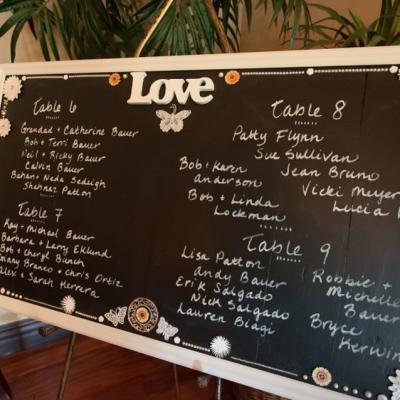 Love
Table 6
Grandad + Catherine Bauer
Bob + Terri Bauer
Neil + Ricky Bauer
Calvin Bauer
Bahan + Neda Sedeigh
Shehnaz Patton
Table 7
Ray + Michael Bauer
Barbara + Larry Eklund
Bob + Cheryl Bunch
Branco + Chris Ortiz
Alex + Sarah Herrera
Table 8
Patty Flynn
Sue Sullivan
Bob + Karen
Anderson
Jean Bruno
Bob + Linda
Lockman
Vicki Meyer
Lucia
Table 9
Lisa Patton
Andy Bauer
Erik Salgado
Nick Salgado
Lauren Biagi
Robbie +
Michelle
Bauer
Bryce
Kerwin